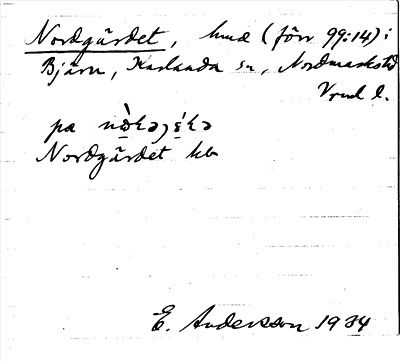 Nordgärdet, hmd (förr 99:14) i
Björn, Karlanda sn, Nordmarks hd
Vrml l.
pa
Nordgärdet kb
E. Andersson 1934